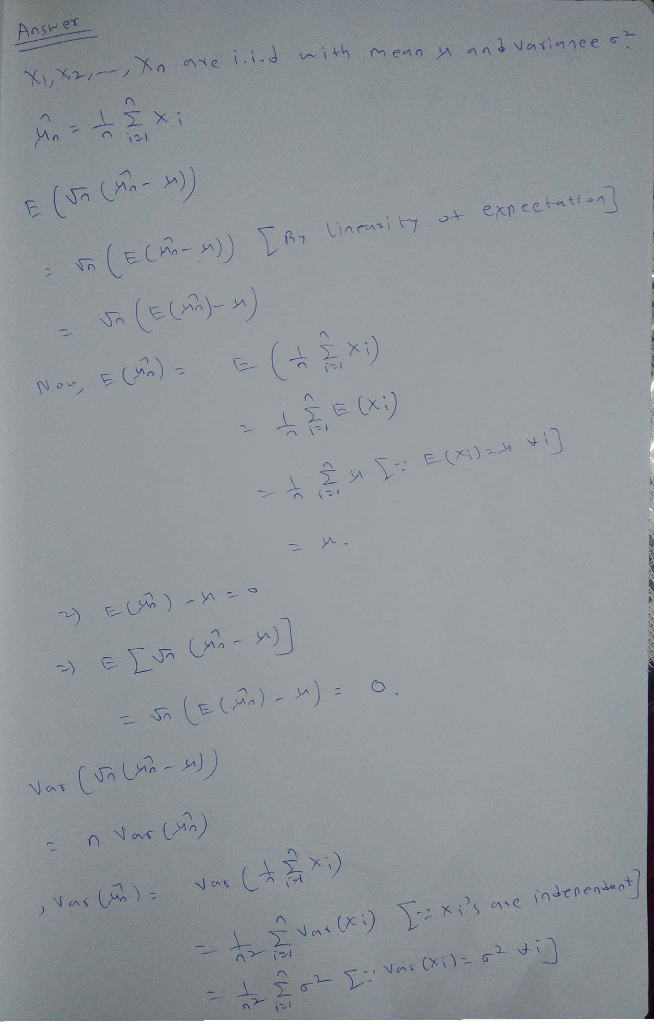 Answer
X₁, X₂, —, Xn are i.i.d with mean μ and variance σ².
μ̂n = 1/n Σᵢ₌₁ⁿ Xi
E (√n (μ̂n - μ))
= √n (E(μ̂n - μ)) [By linearity of expectation]
= √n (E(μ̂n) - μ)
Now, E(μ̂n) = E (1/n Σᵢ₌₁ⁿ Xi)
= 1/n Σᵢ₌₁ⁿ E(Xi)
= 1/n Σᵢ₌₁ⁿ μ [∵ E(Xi) = μ ∀i]
= μ.
⇒ E(μ̂n) - μ = 0
⇒ E [√n (μ̂n - μ)]
= √n (E(μ̂n) - μ) = 0.
Var (√n (μ̂n - μ))
= n Var(μ̂n)
, Var(μ̂n) = Var (1/n Σᵢ₌₁ⁿ Xi)
= 1/n² Σᵢ₌₁ⁿ Var(Xi) [∵ Xi's are independent]
= 1/n² Σᵢ₌₁ⁿ σ² [∵ Var(Xi) = σ² ∀i]